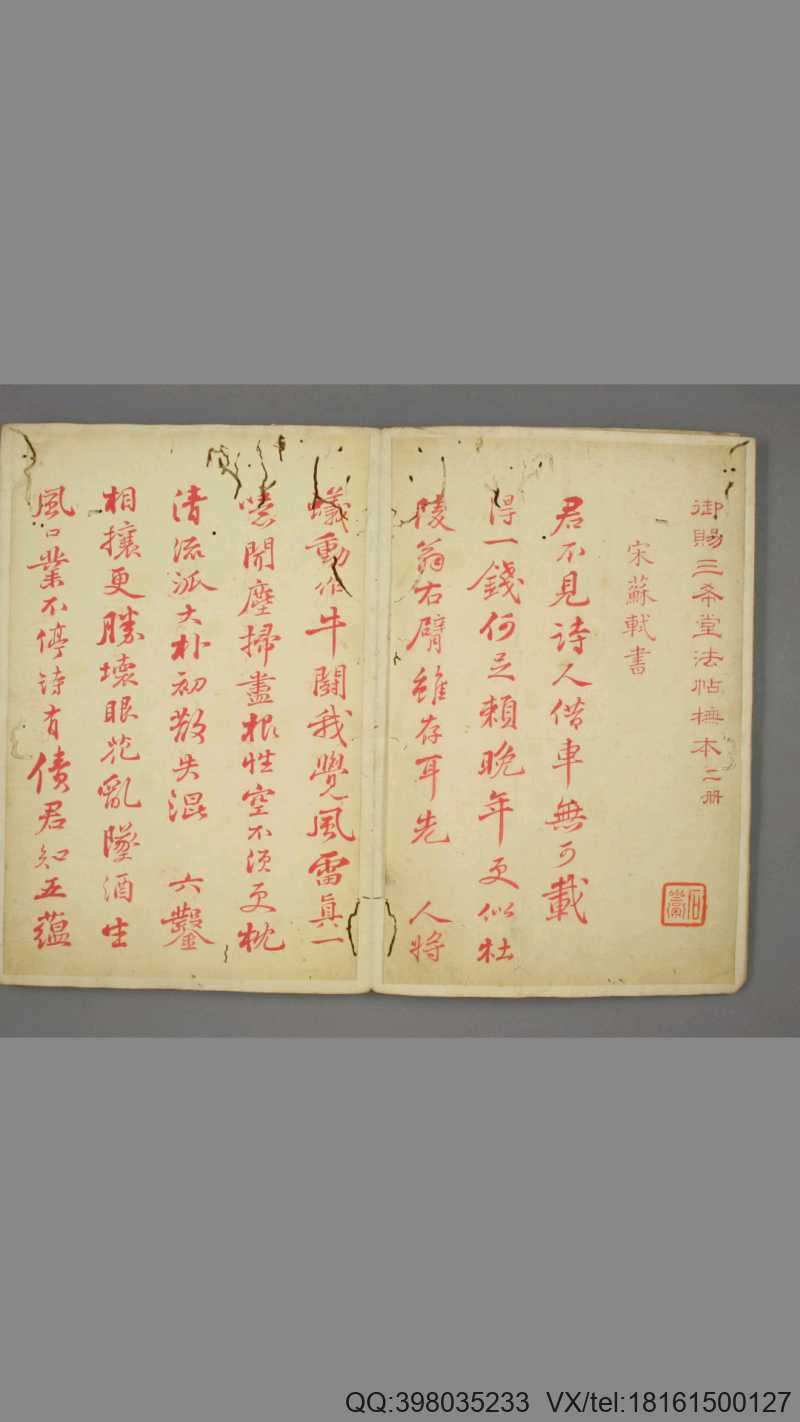 御賜三希堂法帖橅本二册
宋蘇軾書
君不見詩人借車無可載
得一錢何足賴晚年更似杜
陵翁右臂雖存耳先 人將
蟻動作牛鬪我覺風雷真一
噫聞塵掃盡根性空不須更枕
清流派大朴初散失混 六鑿
相攘更勝壞眼花亂墜酒生
風口業不停詩有債君知五蘊
QQ:398035233 VX/tel:18161500127